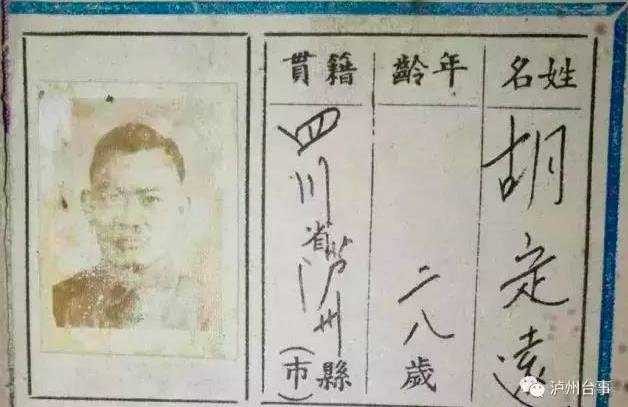 姓名
胡定遠
年齡
二八歲
籍貫
四川省瀘州縣(市)
泸州台事